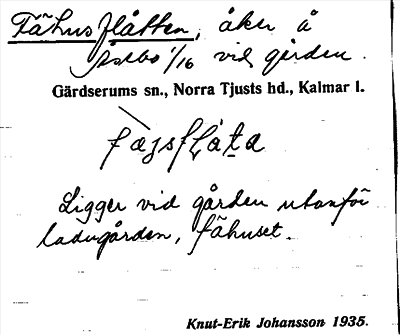 Fähusflåtten, åker å
1/16 vid gården.
Gärdserums sn., Norra Tjusts hd., Kalmar l.
Ligger vid gården utanför
ladugården, fähuset.
Knut-Erik Johansson 1935.